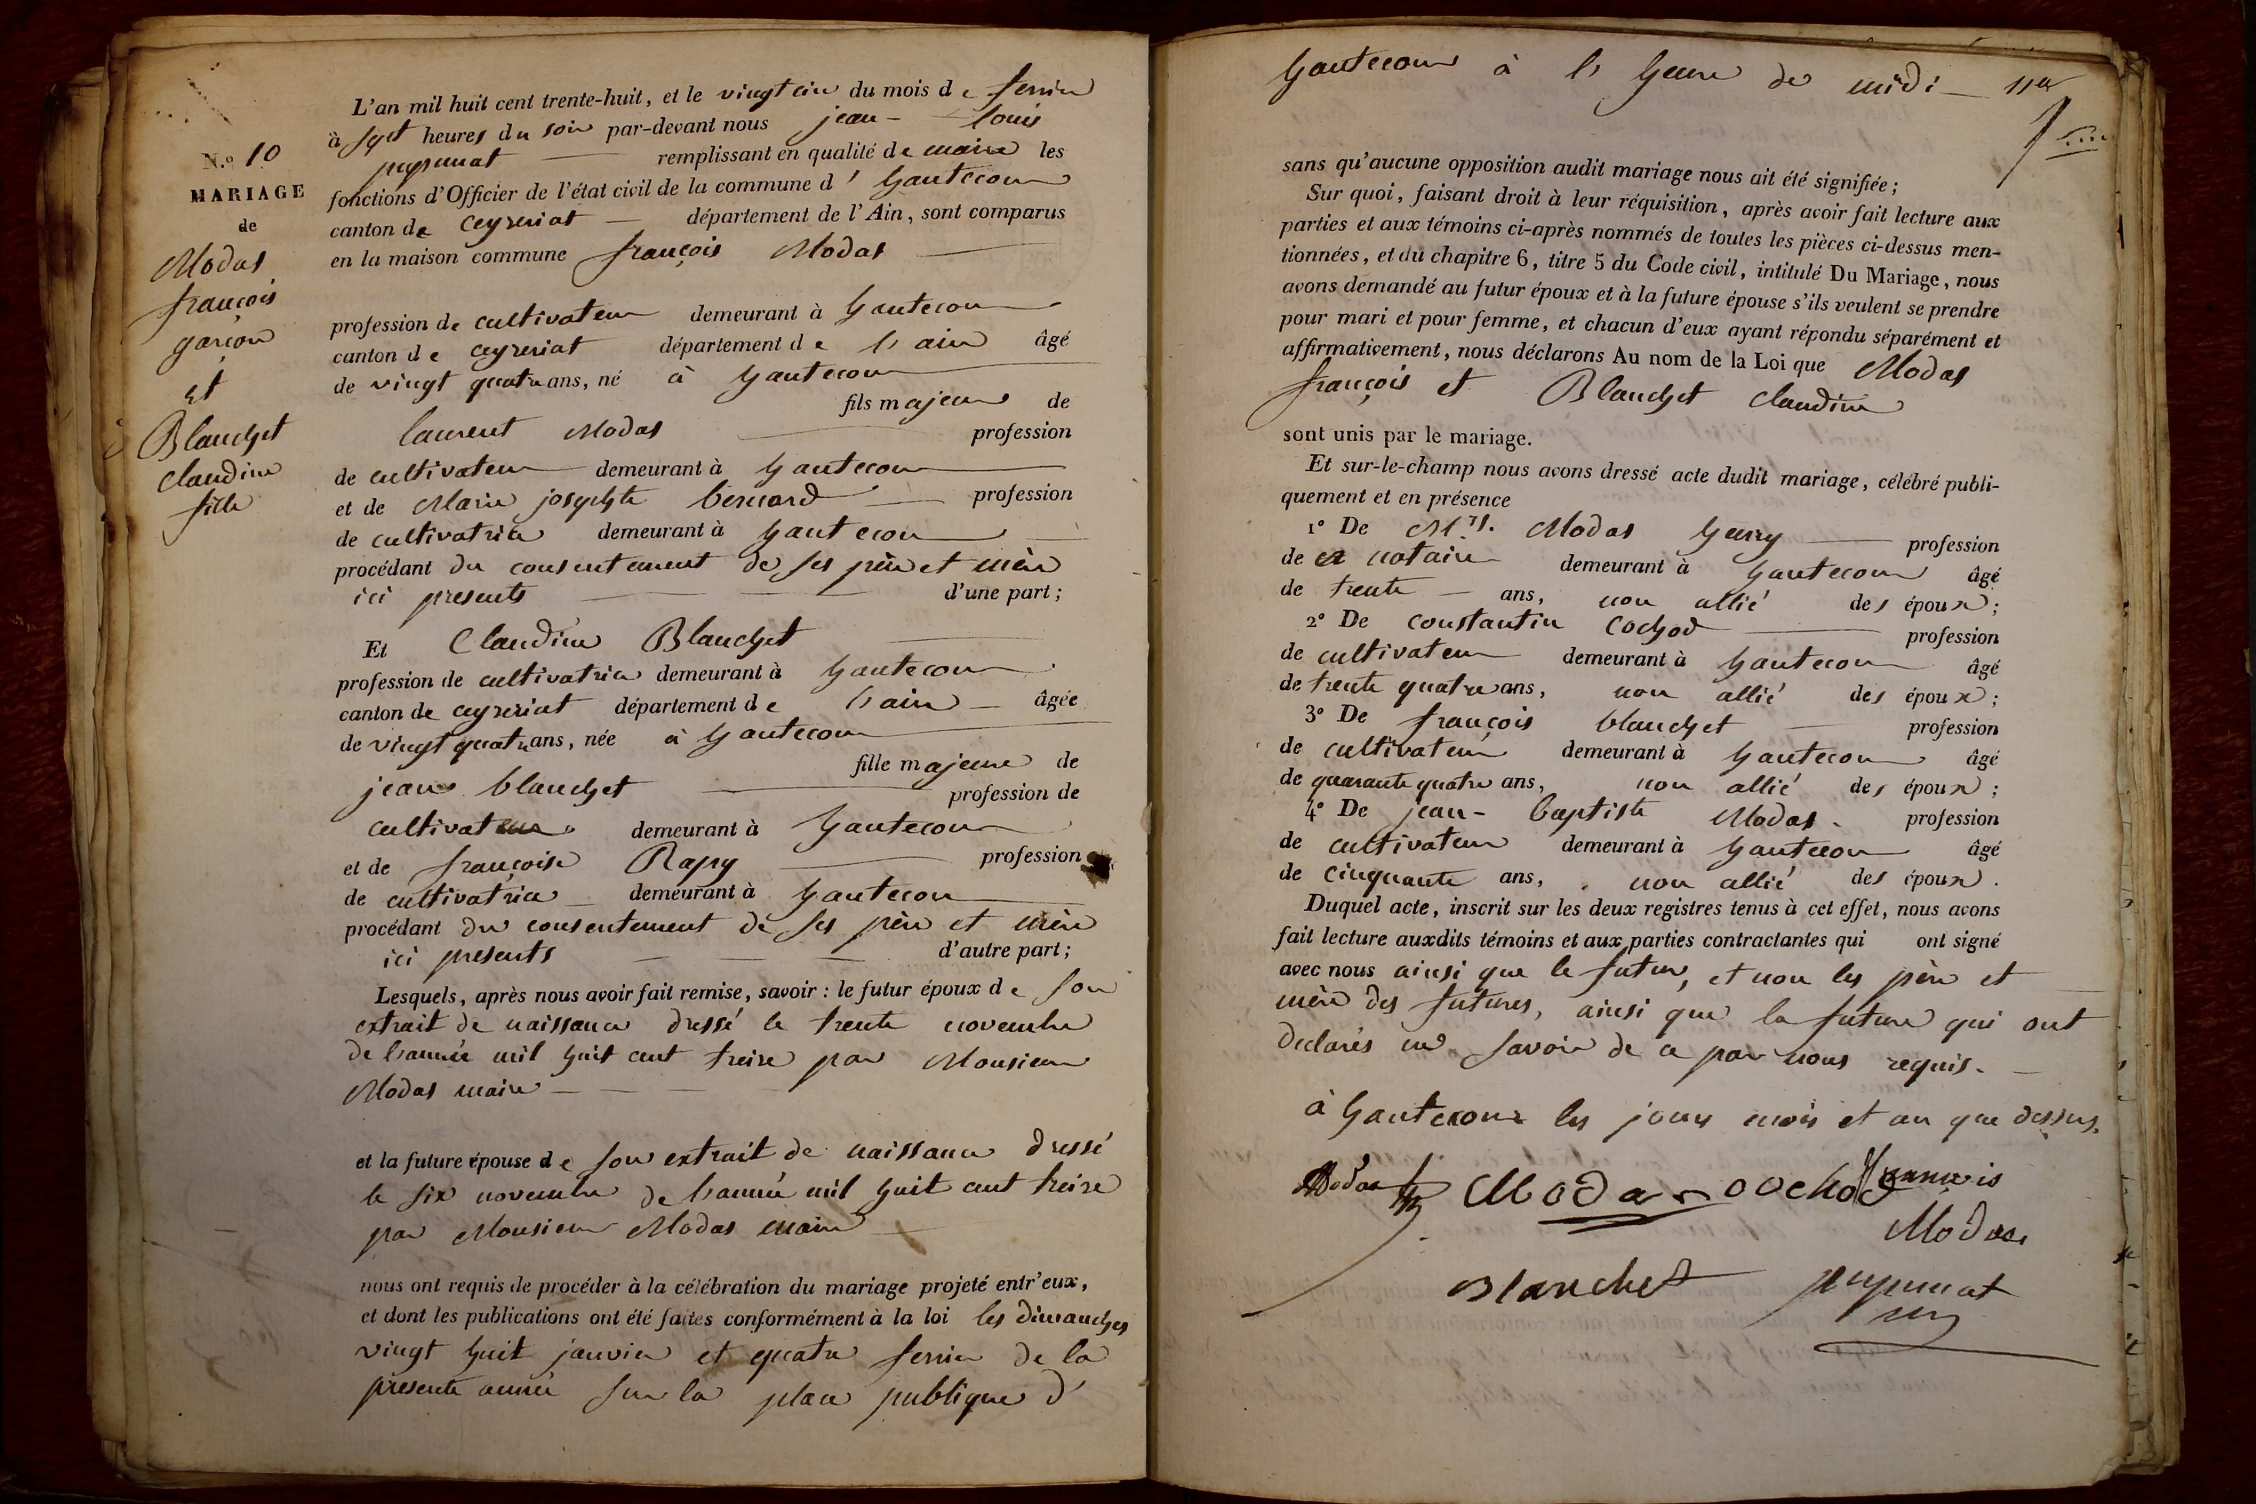 N.º 10
MARIAGE
de
Modas
françois
garçon
et
Blanchet
Claudine
fille
L'an mil huit cent trente-huit, et le vingt cinq du mois de fevrier
à sept heures du soir par-devant nous jean-Louis
puysunat remplissant en qualité de maire les
fonctions d'Officier de l'état civil de la commune d'hautecour
canton de Ceyzeriat département de l'Ain, sont comparus
en la maison commune françois Modas
profession de cultivateur demeurant à hautecour
canton de ceyzeriat département de l'ain âgé
de vingt quatre ans, né à hautecour
fils majeur de
laurent Modas profession
de cultivateur demeurant à hautecour
et de Marie josephte bernard profession
de cultivatrice demeurant à hautecour
procédant du consentement de ses père et mère
ici presents d'une part;
Et Claudine Blanchet
profession de cultivatrice demeurant à hautecour
canton de ceyzeriat département de l'ain âgée
de vingt quatre ans, née à hautecour
fille majeure de
jean blanchet profession de
cultivateur demeurant à hautecour
et de françoise Rapy profession
de cultivatrice demeurant à hautecour
procédant du consentement de ses père et mère
ici presents d'autre part;
Lesquels, après nous avoir fait remise, savoir : le futur époux de son
extrait de naissance dressé le trente novembre
de l'année mil huit cent treize par Monsieur
Modas maire
et la future épouse de son extrait de naissance dressé
le six novembre de l'année mil huit cent treize
par Monsieur Modas maire
nous ont requis de procéder à la célébration du mariage projeté entr'eux,
et dont les publications ont été faites conformément à la loi les dimanches
vingt huit janvier et quatre fevrier de la
presente année sur la place publique d'
hautecour à l'heure de midi
sans qu'aucune opposition audit mariage nous ait été signifiée;
Sur quoi, faisant droit à leur réquisition, après avoir fait lecture aux
parties et aux témoins ci-après nommés de toutes les pièces ci-dessus men-
tionnées, et du chapitre 6, titre 5 du Code civil, intitulé Du Mariage, nous
avons demandé au futur époux et à la future épouse s'ils veulent se prendre
pour mari et pour femme, et chacun d'eux ayant répondu séparément et
affirmativement, nous déclarons Au nom de la Loi que Modas
françois et Blanchet claudine
sont unis par le mariage.
Et sur-le-champ nous avons dressé acte dudit mariage, célébré publi-
quement et en présence
1º De Mrs. Modas henry profession
de notaire demeurant à hautecour âgé
de trente ans, non allié des époux;
2º De constantin cochod profession
de cultivateur demeurant à hautecour âgé
de trente quatre ans, non allié des époux;
3º De françois blanchet profession
de cultivateur demeurant à hautecour âgé
de quarante quatre ans, non allié des époux;
4º De jean-baptiste Modas profession
de cultivateur demeurant à hautecour âgé
de cinquante ans, non allié des époux.
Duquel acte, inscrit sur les deux registres tenus à cet effet, nous avons
fait lecture auxdits témoins et aux parties contractantes qui ont signé
avec nous ainsi que le futur, et non les père et
mère des futures, ainsi que la future qui ont
declarés ne savoir de ce par nous requis.
à hautecour les jours mois et an que dessus.
Modas Modas cochod francois
Modas
Blanchet puysunat